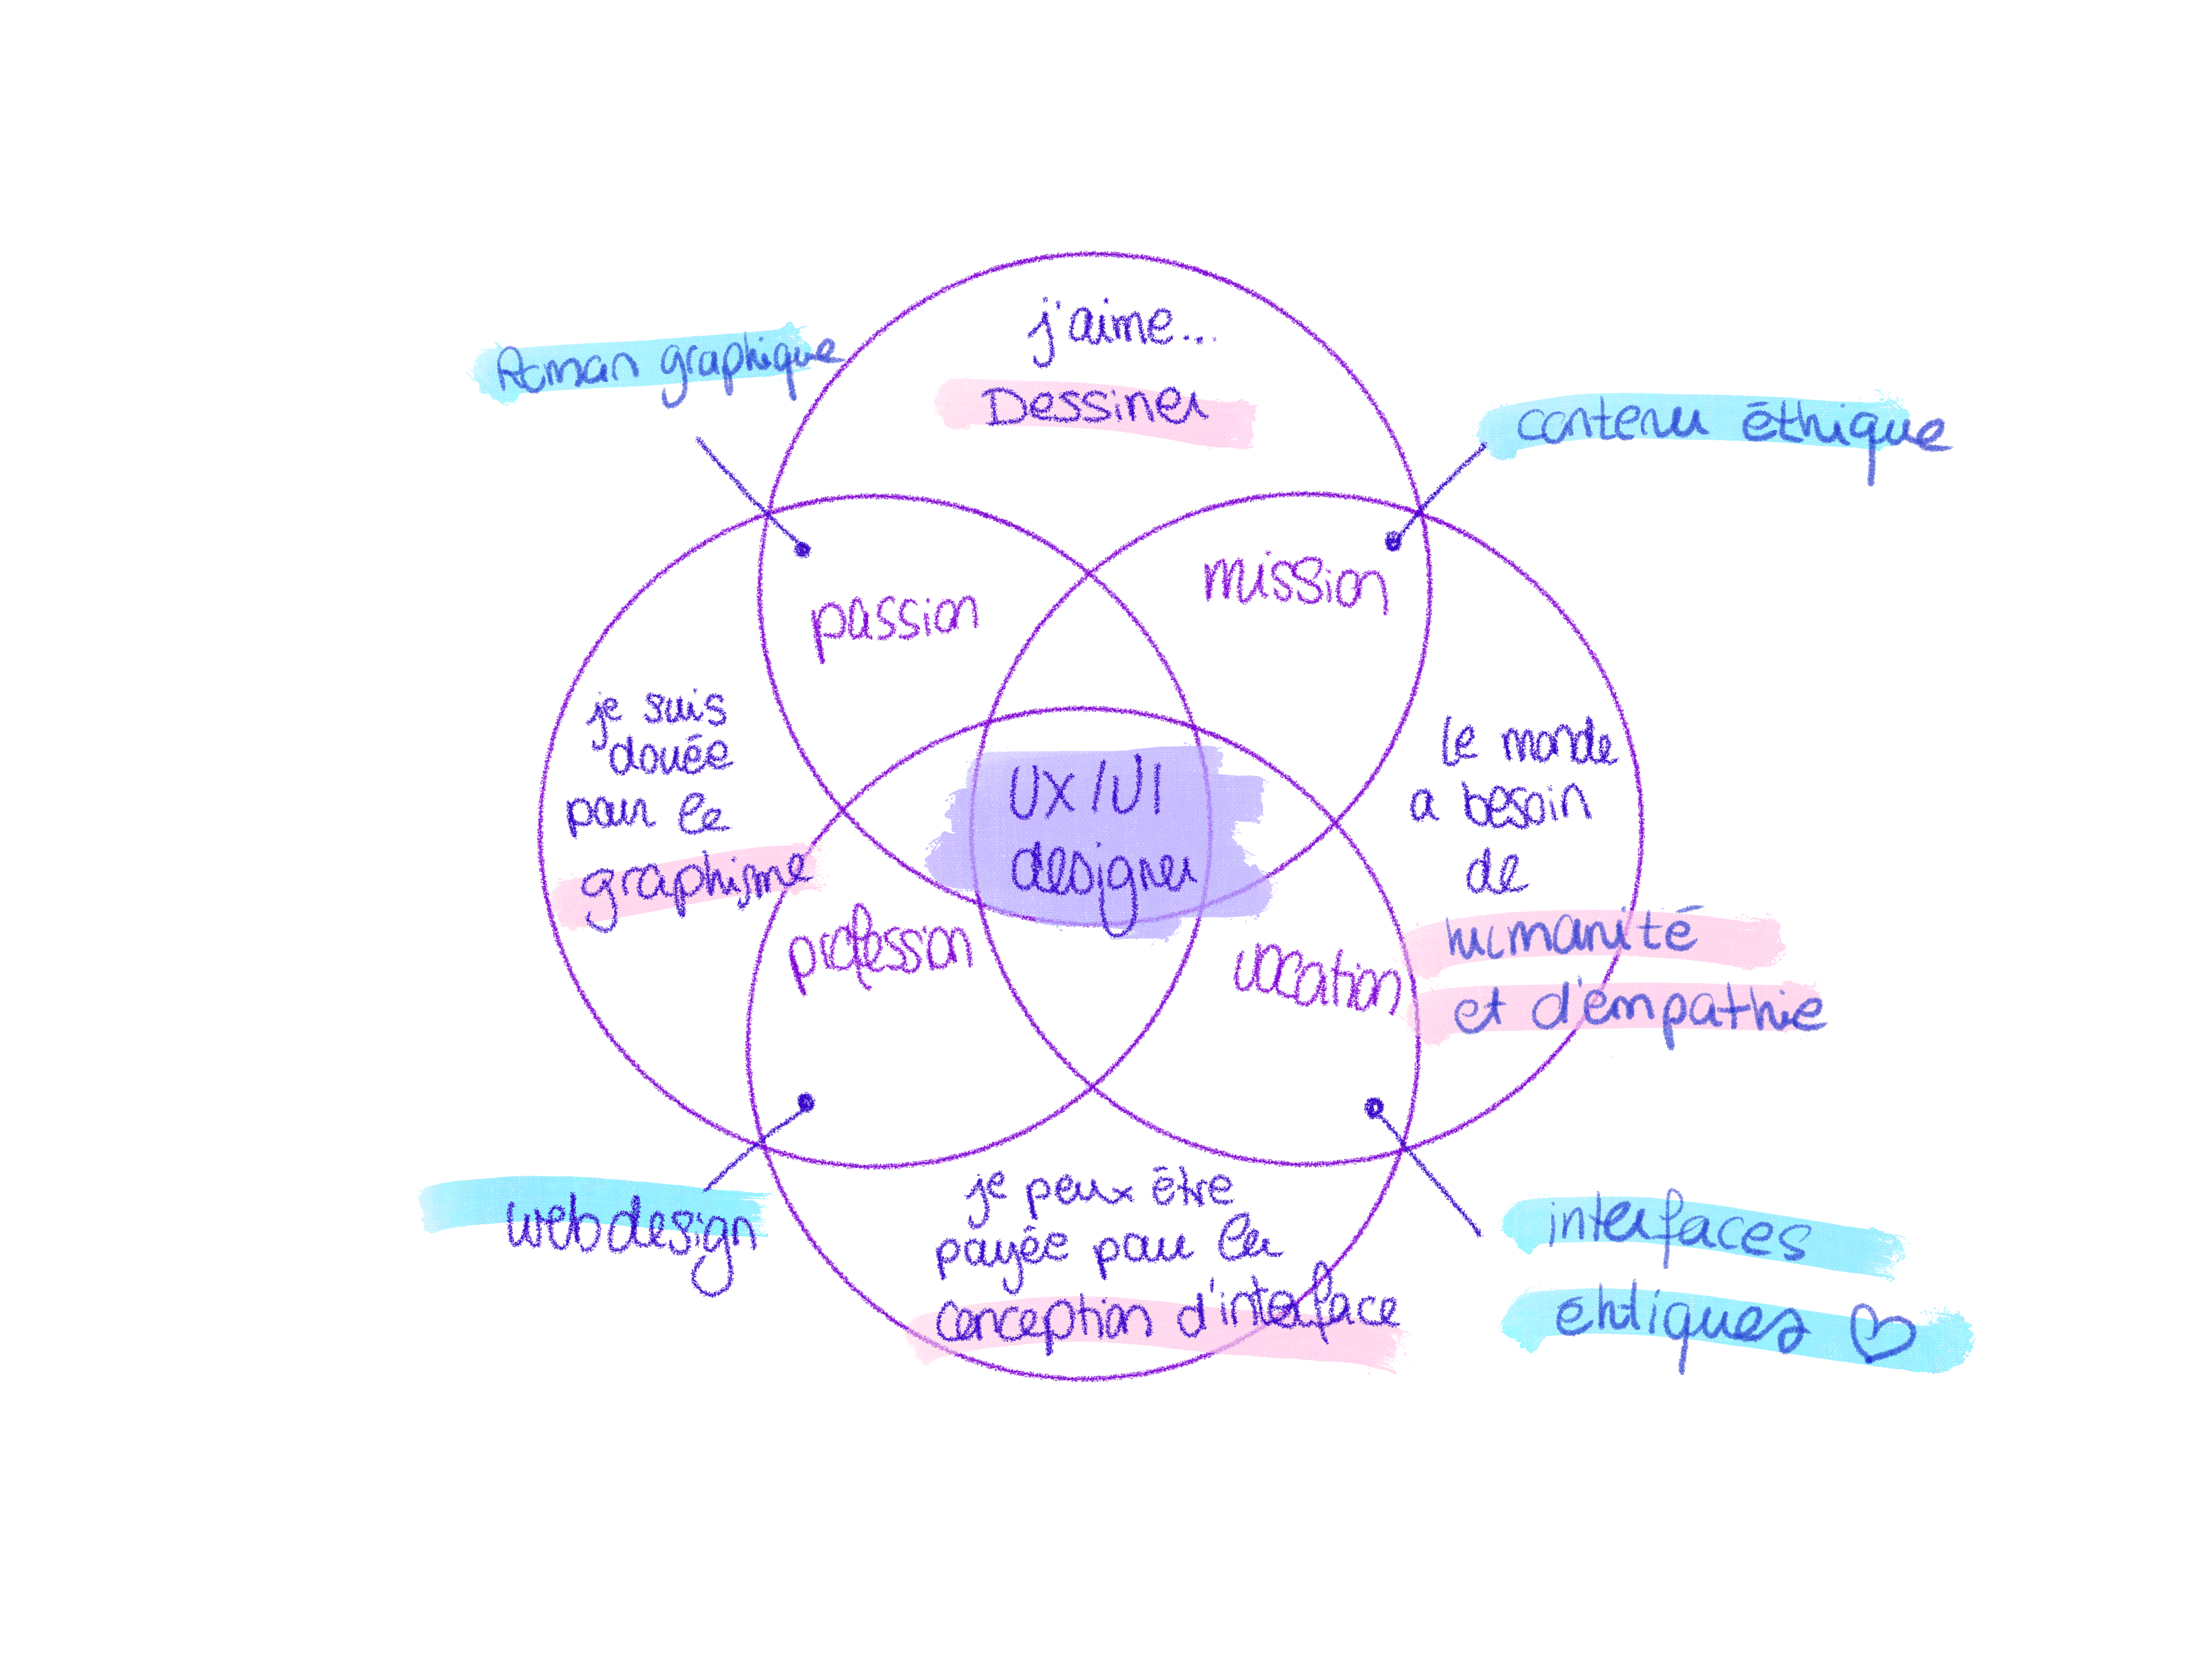 j'aime...
Dessiner
Roman graphique
contenu éthique
passion
mission
je suis
douée
pour le
graphisme
UX/UI
designer
le monde
a besoin
de
humanité
et d'empathie
profession
vocation
webdesign
je peux être
payée pour la
conception d'interface
interfaces
éhtiques ♡